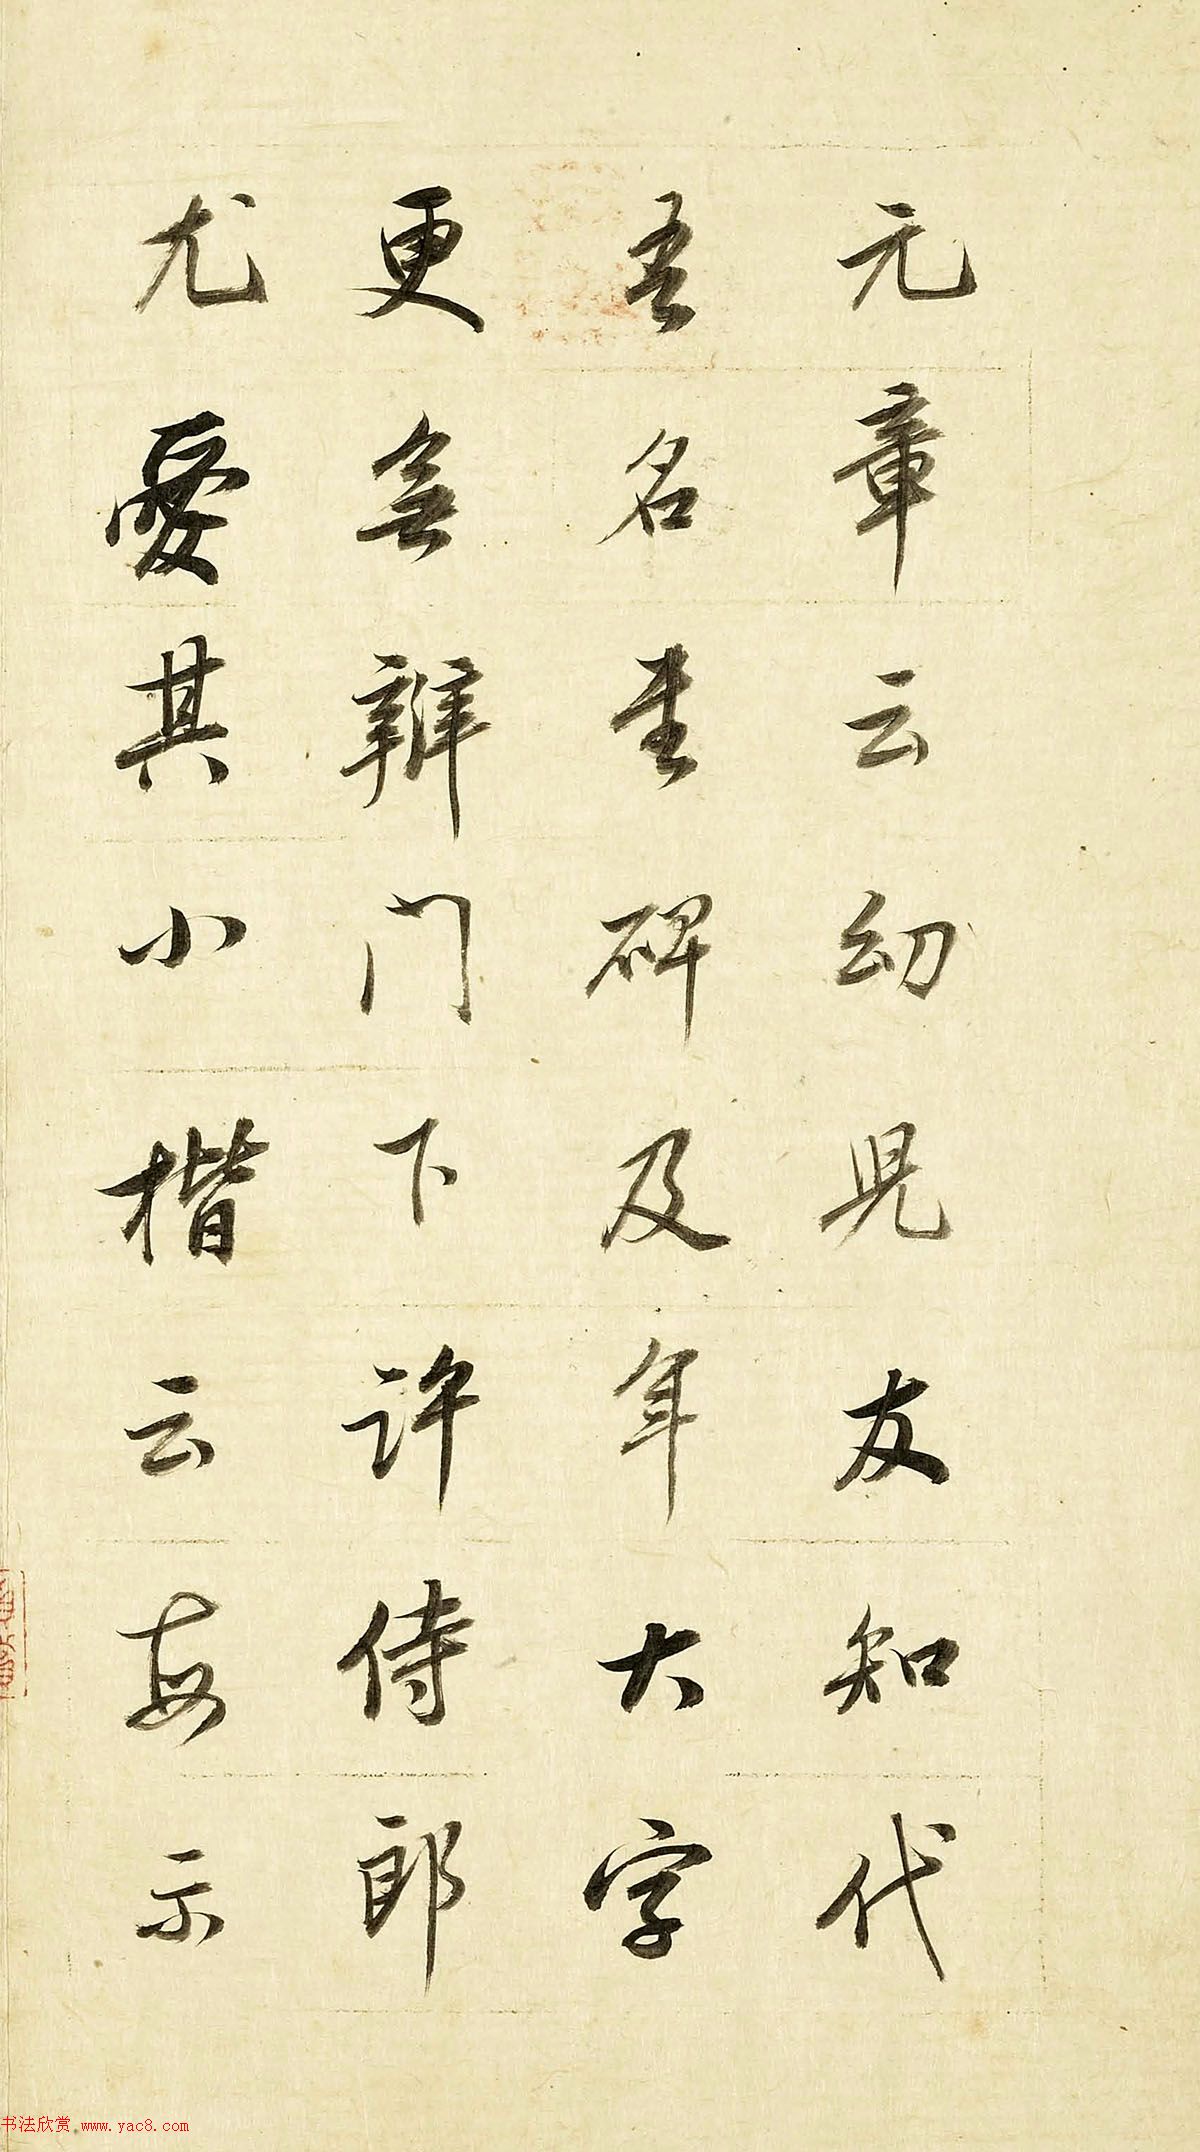 元章云幼儿友知代
吾名書碑及年大字
更無辨門下許侍郎
尤愛其小楷云每示
书法欣赏 www.yac8.com